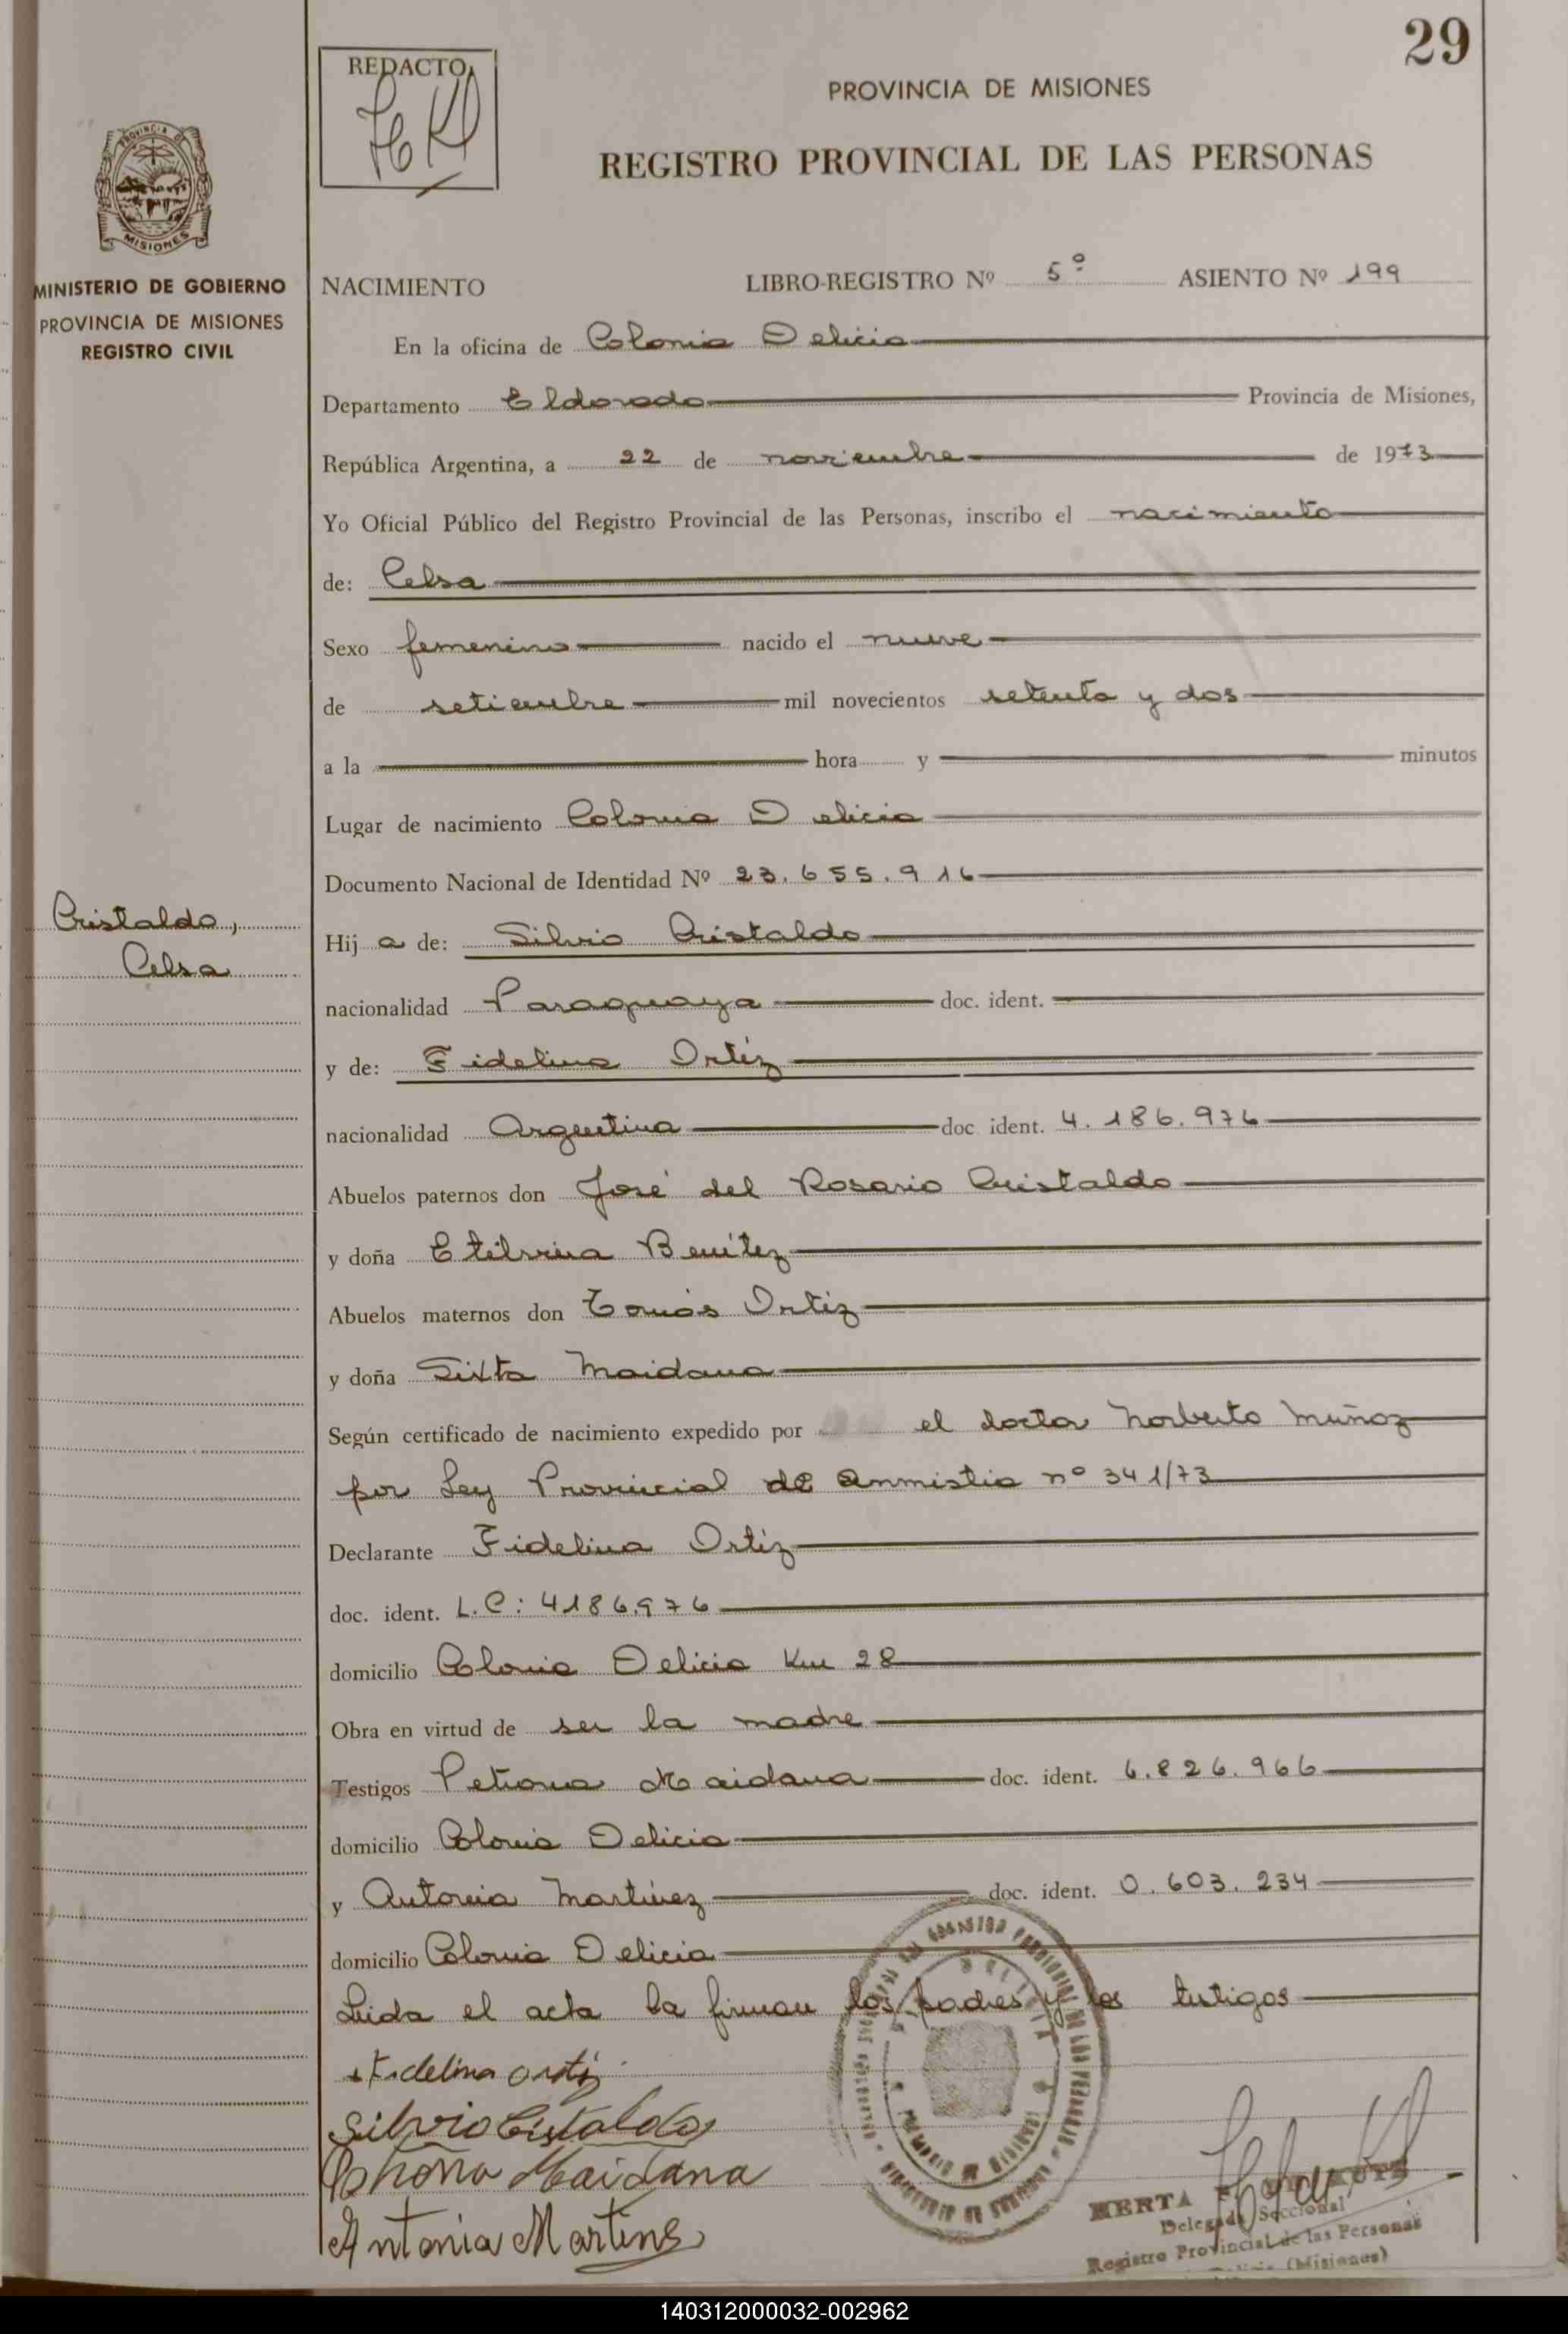 29
REDACTO
PROVINCIA DE MISIONES
REGISTRO PROVINCIAL DE LAS PERSONAS
PROVINCIA DE
MISIONES
MINISTERIO DE GOBIERNO
PROVINCIA DE MISIONES
REGISTRO CIVIL
NACIMIENTO LIBRO-REGISTRO Nº 5º ASIENTO Nº 199
En la oficina de Colonia Delicia
Departamento Eldorado Provincia de Misiones,
República Argentina, a 22 de noviembre de 1973
Yo Oficial Público del Registro Provincial de las Personas, inscribo el nacimiento
de: Celsa
Sexo femenino nacido el nueve
de setiembre mil novecientos setenta y dos
a la hora y minutos
Lugar de nacimiento Colonia Delicia
Documento Nacional de Identidad Nº 23.655.916
Cristaldo,
Celsa
Hij a de: Silvio Cristaldo
nacionalidad Paraguaya doc. ident.
y de: Fidelina Ortíz
nacionalidad Argentina doc. ident. 4.186.976
Abuelos paternos don José del Rosario Cristaldo
y doña Etelvina Benítez
Abuelos maternos don Tomás Ortiz
y doña Sixta Maidana
Según certificado de nacimiento expedido por el doctor Norberto Muñoz
por Ley Provincial de Anmistia nº 341/73
Declarante Fidelina Ortiz
doc. ident. L.C: 4186.976
domicilio Colonia Delicia Km 28
Obra en virtud de ser la madre
Testigos Petrona Maidana doc. ident. 6.826.966
domicilio Colonia Delicia
y Antonia Martinez doc. ident. 0.603.234
domicilio Colonia Delicia
Leida el acta la firman los padres y los testigos
Fidelina Ortiz
Silvio Cristaldo
Maidana
Antonia Martines
HERTA
Delegada Seccional
Registro Provincial de las Personas
(Misiones)
140312000032-002962